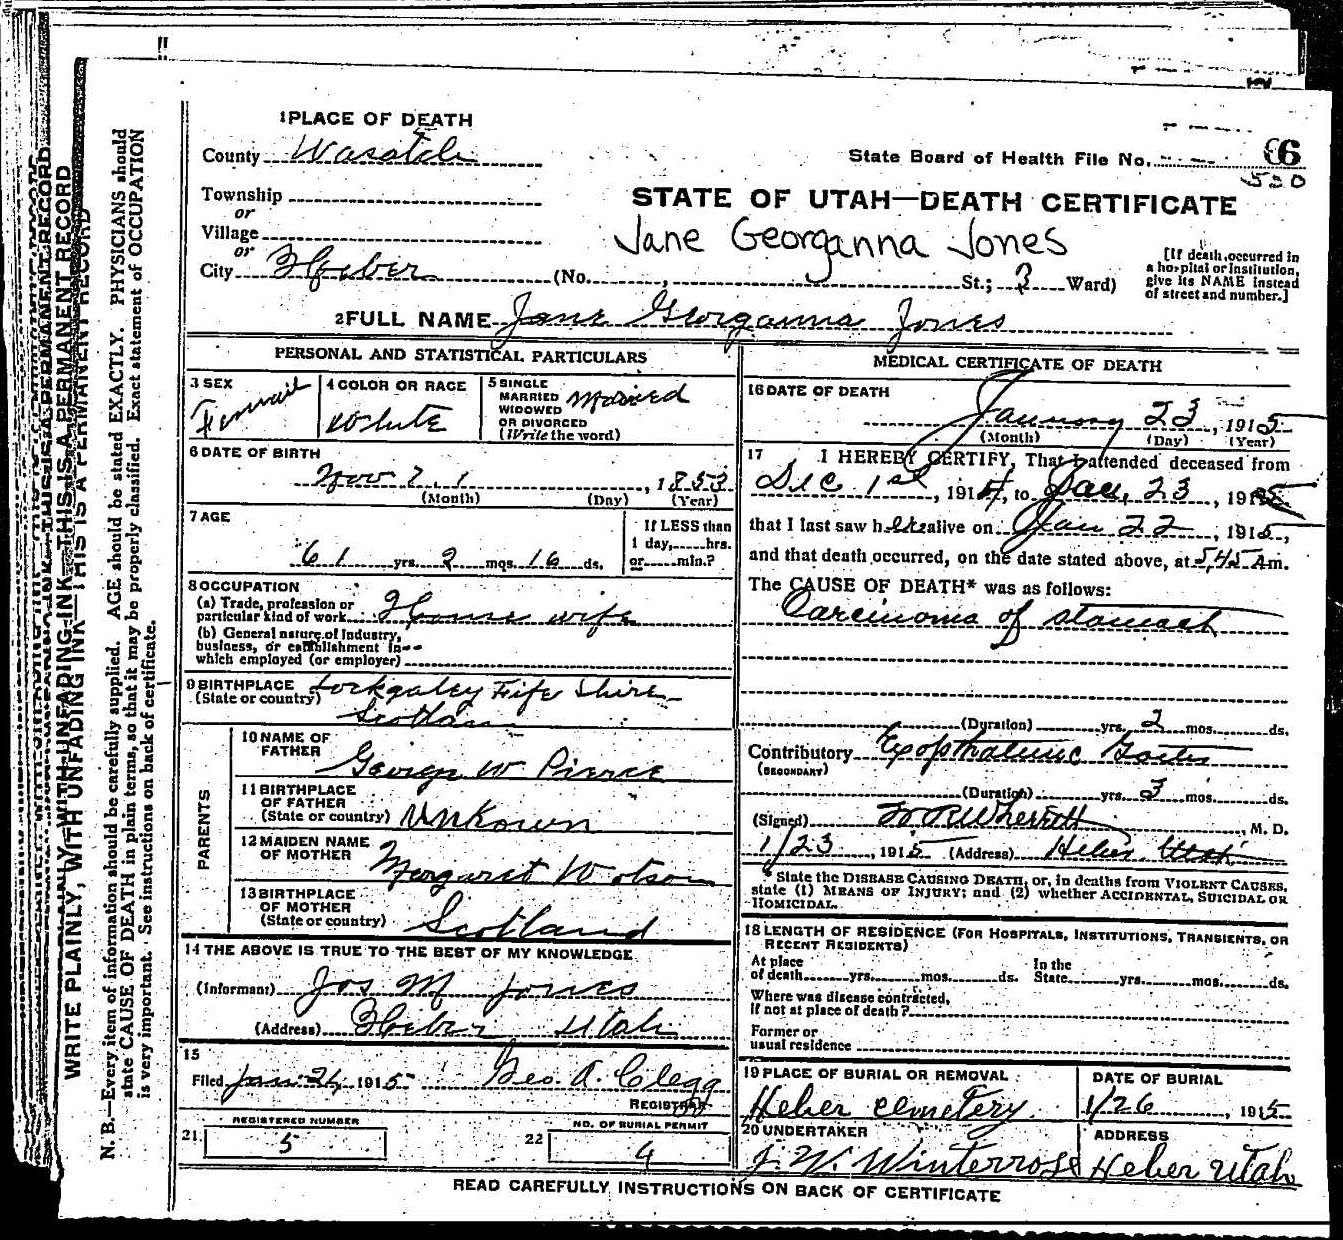 1 PLACE OF DEATH
County Wasatch
State Board of Health File No. 66
530
Township
or
Village
or
City Heber (No. , St.; 3 Ward)
STATE OF UTAH—DEATH CERTIFICATE
Jane Georganna Jones
[If death occurred in
a hospital or institution,
give its NAME instead
of street and number.]
2 FULL NAME Jane Georganna Jones
PERSONAL AND STATISTICAL PARTICULARS
3 SEX
4 COLOR OR RACE White
5 SINGLE
MARRIED
WIDOWED
OR DIVORCED
(Write the word) Maried
6 DATE OF BIRTH
Nov 7, 1853
(Month) (Day) (Year)
7 AGE
61 yrs. 2 mos. 16 ds.
If LESS than
1 day, hrs.
or min.?
8 OCCUPATION
(a) Trade, profession or
particular kind of work House wife
(b) General nature of Industry,
business, or establishment in
which employed (or employer)
9 BIRTHPLACE
(State or country) Fife Shire
10 NAME OF
FATHER W Pierce
11 BIRTHPLACE
OF FATHER
(State or country) Unkown
12 MAIDEN NAME
OF MOTHER Margaret Wotson
13 BIRTHPLACE
OF MOTHER
(State or country) Scotland
PARENTS
14 THE ABOVE IS TRUE TO THE BEST OF MY KNOWLEDGE
(Informant) Jos M Jones
(Address) Heber Utah
15
Filed Jan 24, 1915 Geo. A. Clegg
REGISTRAR
REGISTERED NUMBER
21 5
NO. OF BURIAL PERMIT
22 4
MEDICAL CERTIFICATE OF DEATH
16 DATE OF DEATH
January 23, 1915
(Month) (Day) (Year)
17 I HEREBY CERTIFY, That I attended deceased from
Dec 1st, 1914, to Jan, 23, 1915
that I last saw her alive on Jan 22, 1915,
and that death occurred, on the date stated above, at 5,45 Am.
The CAUSE OF DEATH* was as follows:
Carcinoma of stomach
(Duration) yrs. 2 mos. ds.
Contributory Exopthalmic Goiter
(SECONDARY)
(Duration) yrs. 3 mos. ds.
(Signed) Wherritt, M. D.
1/23, 1915 (Address) Heber Utah
* State the DISEASE CAUSING DEATH, or, in deaths from VIOLENT CAUSES,
state (1) MEANS OF INJURY; and (2) whether ACCIDENTAL, SUICIDAL OR
HOMICIDAL.
18 LENGTH OF RESIDENCE (FOR HOSPITALS, INSTITUTIONS, TRANSIENTS, OR
RECENT RESIDENTS)
At place
of death yrs. mos. ds.
In the
State yrs. mos. ds.
Where was disease contracted,
if not at place of death?
Former or
usual residence
19 PLACE OF BURIAL OR REMOVAL
Heber Cemetery
DATE OF BURIAL
1/26, 1915
20 UNDERTAKER
J. W. Winterrose
ADDRESS
Heber Utah
READ CAREFULLY INSTRUCTIONS ON BACK OF CERTIFICATE
WRITE PLAINLY, WITH UNFADING INK—THIS IS A PERMANENT RECORD
N. B.—Every item of information should be carefully supplied. AGE should be stated EXACTLY. PHYSICIANS should
state CAUSE OF DEATH in plain terms, so that it may be properly classified. Exact statement of OCCUPATION
is very important. See instructions on back of certificate.